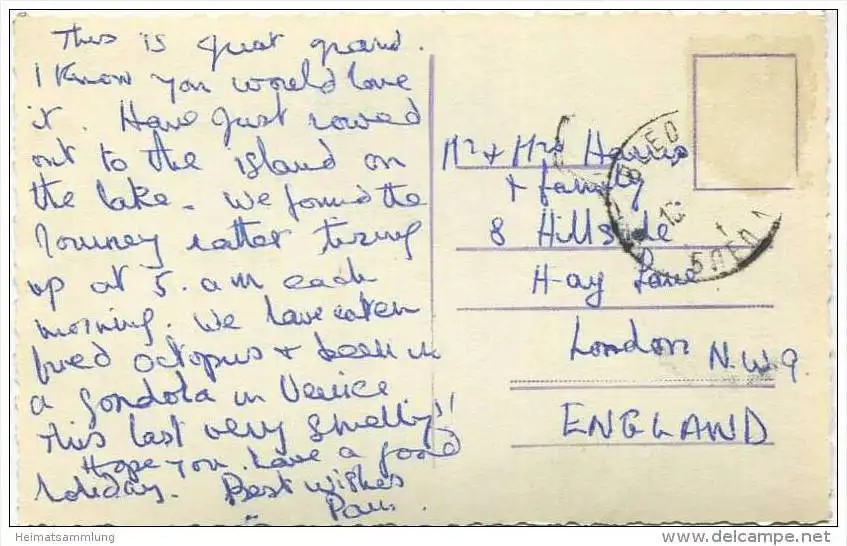 This is just grand.
I know you would love
it. Have just rowed
out to the island on
the lake. We found the
Journey rather tiring
up at 5. a.m each
morning. We have eaten
fried octopus & been in
a gondola in Venice
this last very smelly!!
Hope you have a good
holiday. Best wishes
Pam.
Mr & Mrs Harris
& family
8 Hillside
Hay Lane
London N.W.9.
ENGLAND
BLED
БЛЕД
Heimatsammlung
www.delcampe.net